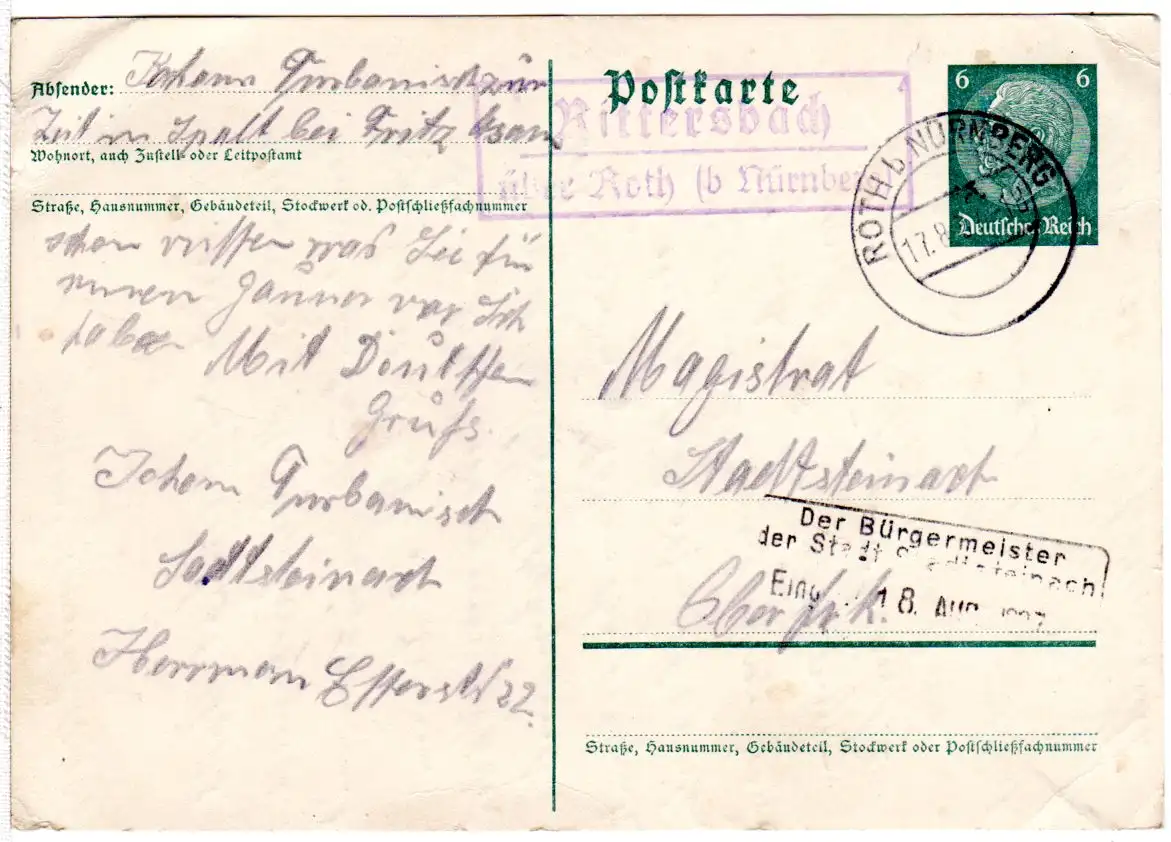 Postkarte
6 6
Deutsches Reich
ROTH b NÜRNBERG
17.8.
Rittersbach
über Roth (b Nürnberg)
Absender: Johann Turbanisch zür
Zeit in Spalt bei Fritz
Wohnort, auch Zustell- oder Leitpostamt
Straße, Hausnummer, Gebäudeteil, Stockwerk od. Postschließfachnummer
schon wissen was Sei für
einen Janner vor Sich
haben Mit Deutschen
Gruß.
Johann Turbanisch
Sadtsteinach
Herrman 22.
Magistrat
Stadtsteinach
Oberfrk.
Der Bürgermeister
der Stadt Stadtsteinach
Eing. 18. AUG. 1937
Straße, Hausnummer, Gebäudeteil, Stockwerk oder Postschließfachnummer